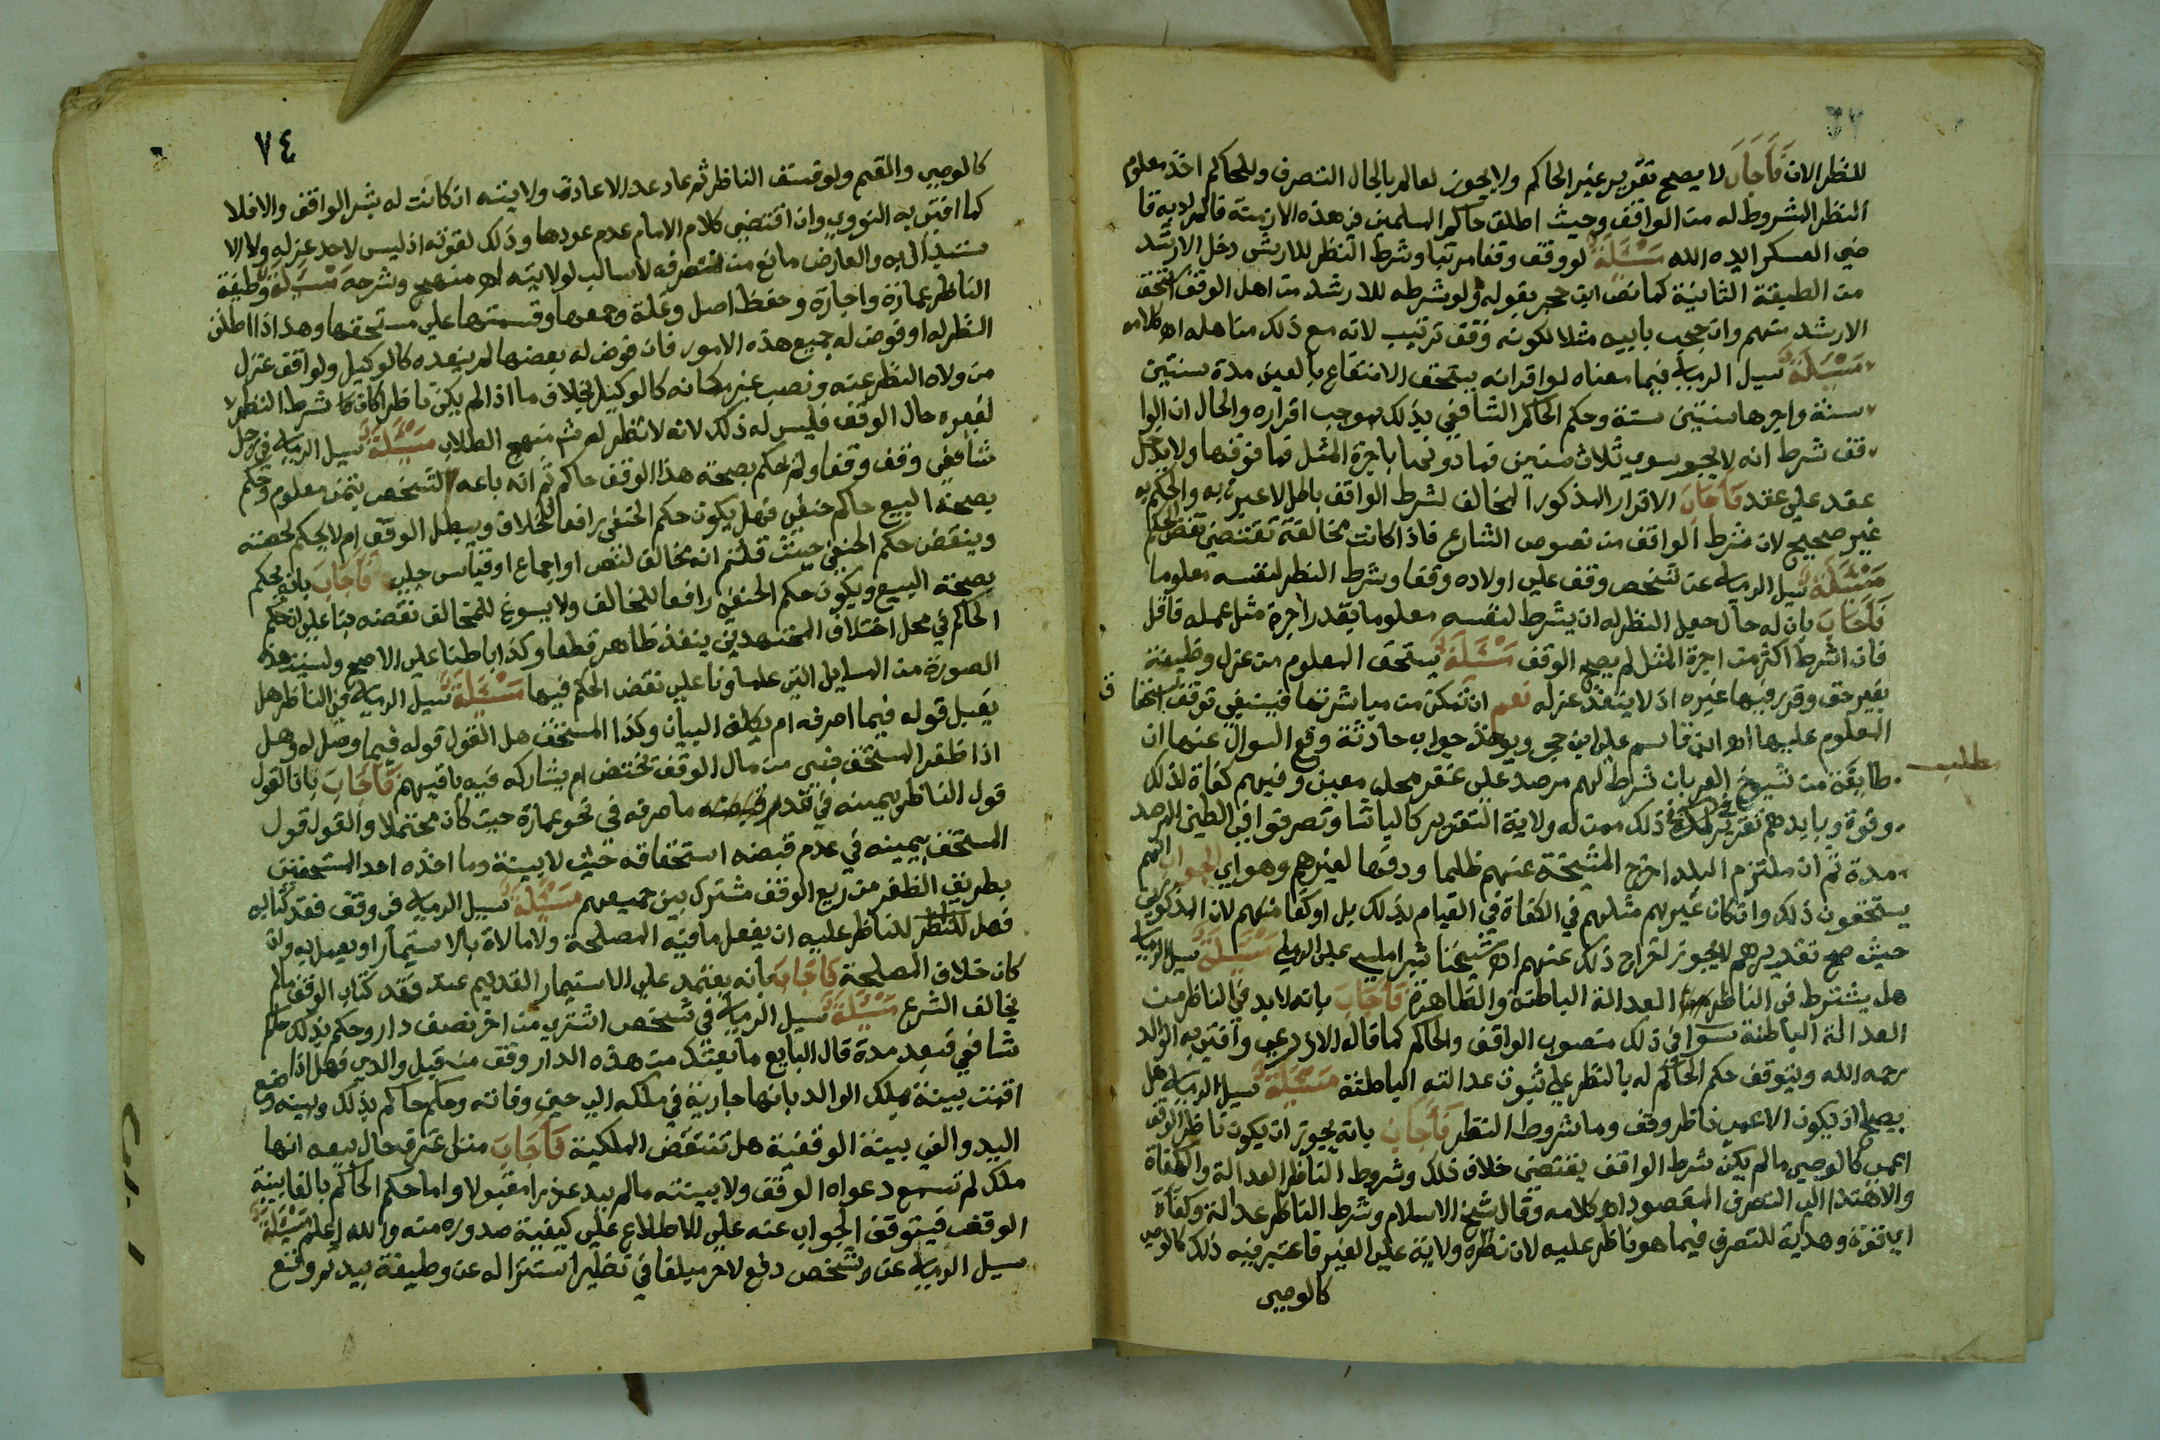 للنظر الان فأجاب لا يصح تقرير غير الحاكم ولا يجوز لعالم بالحال التصرف وللحاكم اخذ معلوم
النظر المشروط له من الواقف وحيث اطلق حاكم المسلمين في هذه الازمنة فالمراد به قا
ضي العسكر ايده الله مسئلة لو وقف وقفا مرتبا وشرط النظر للارشد دخل الارشد
من الطبقة الثانية كما نص ابن حجر بقوله ولو شرطه للارشد من اهل الوقف استحق
الارشد منهم وان حجب بابيه مثلا لكونه وقف ترتيب لانه مع ذلك من اهله اهـ كلامه
مسئلة سيل الرملي فيما معناه لو اقر انه يستحق الانتفاع بالعين مدة سنتين
سنة واجرها سنتين سنة وحكم الحاكم الشافعي بذلك بموجب اقراره والحال ان الوا
قف شرط انه لا يجر سوى ثلاث سنين فما دونها باجرة المثل فما فوقها ولا يدخل
عقد على عقد فأجاب الاقرار المذكور المخالف لشرط الواقف باطل لا عبرة به والحكم به
غير صحيح لان شرط الواقف من نصوص الشارع فاذا كانت مخالفة تقتضي نقض الحكم
مسئلة سيل الرملي عن شخص وقف على اولاده وقفا وشرط النظر لنفسه معلوما
فأجاب بان له حال جعل النظر له ان يشرط لنفسه معلوما بقدر اجرة مثل عمله فاقل
فان شرط اكثر من اجرة المثل لم يصح الوقف مسئلة يستحق المعلوم من عزل وظيفته
بغير حق وقرر فيها غيره اذ لا ينفذ عزله نعم ان تمكن من مباشرتها فينبغي توقف استحقا
المعلوم عليها اهـ ابن قاسم على ابن حجر ويوخذ جواب حادثة وقع السوال عنها ان
مطلب
طايفة من شيوخ العربان شرط لهم مرصد على غفر محل معين وفيهم كفاة لذلك
وقوة وبايديهم تقرير في ذلك ممن له ولاية التقرير كالباشا وتصرفوا في الطين المرصد
مدة ثم ان ملتزم البلد اخرج المشيخة عنهم ظلما ودفعها لغيرهم وهو اي الجواب انهم
يستحقون ذلك وان كان غيرهم مثلهم في الكفاة في القيام بذلك بل او كفا منهم لان المذكورين
حيث صح تقديرهم لا يجوز لاخراج ذلك عنهم اهـ شيخنا شبراملسي على الرملي مسئلة سيل الرملي
هل يشترط في الناظر العدالة الباطنة والظاهرة فأجاب بانه لا بد في الناظر من
العدالة الباطنة سوا في ذلك منصوب الواقف والحاكم كما قاله الاذرعي وافتى به الوالد
رحمه الله ويتوقف حكم الحاكم له بالنظر على ثبوت عدالته الباطنة مسئلة سيل الرملي هل
يصح ان يكون الاعمى ناظر وقف وما شروط النظر فأجاب بانه يجوز ان يكون ناظر الوقف
اعمى كالوصي ما لم يكن شرط الواقف يقتضي خلاف ذلك وشروط الناظر العدالة والكفاة
والاهتدا الى التصرف المقصود اهـ كلامه وقال شيخ الاسلام وشرط الناظر عدالة وكفاة
اي قوة وهداية للتصرف فيما هو ناظر عليه لان نظره ولاية على الغير فاعتبر فيه ذلك كالوصي
كالوصي
٧٤
كالوصي والقيم ولو فسق الناظر ثم عاد عدلا عادت ولايته ان كانت له بشرط الواقف والا فلا
كما افتى به النووي وان اقتضى كلام الامام عدم عودها وذلك لقوته اذ ليس لاحد عزله ولا الا
ستبدال به والعارض مانع من تصرفه لا سالب لولايته اهـ منهج وشرحه مسئلة وظيفة
الناظر عمارة واجارة وحفظ اصل وغلة وجمعها وقسمتها على مستحقها وهذا اذا اطلق
النظر له او فوض له جميع هذه الامور فان فوض له بعضها لم يتعده كالوكيل ولواقف عزل
من ولاه النظر عنه ونصب غيره مكانه كالوكيل بخلاف ما اذا لم يكن ناظرا كان شرط النظر لا
لغيره حال الوقف فليس له ذلك لانه لا نظر له منهج الطلاب مسئلة سيل الرملي في رجل
شافعي وقف وقفا ولم يحكم بصحة هذا الوقف حاكم ثم انه باعه لشخص بثمن معلوم وحكم
بصحة البيع حاكم حنفي فهل يكون حكم الحنفي رافعا للخلاف ويبطل الوقف ام لا يحكم بصحته
وينقض حكم الحنفي حيث قلتم انه مخالف لنص او اجماع او قياس جلي فأجاب بانه يحكم
بصحة البيع ويكون حكم الحنفي رافعا للمخالف ولا يسوغ للمخالف نقضه بنا على ان حكم
الحاكم في محل اختلاف المجتهدين ينفذ ظاهر قطعا وكذا باطنا على الاصح وليست هذه
الصورة من المسايل التي علماونا على نقض الحكم فيها مسئلة سيل الرملي في الناظر هل
يقبل قوله فيما اصرفه ام يكلف البيان وكذا المستحق هل القول قوله فيما وصل له وهل
اذا ظفر المستحق بشي من مال الوقف يختص ام يشاركه فيه باقيهم فأجاب بان القول
قول الناظر بيمينه في قدم ما صرفه في نحو عمارة حيث كان محتملا والقول قول
المستحق بيمينه في عدم قبضه استحقاقه حيث لا بينة وما اخذه احد المستحقين
بطريق الظفر من ريع الوقف مشترك بين جميعهم مسئلة سيل الرملي في وقف فقد كتابه
فهل للناظر عليه ان يفعل ما فيه المصلحة ولا مبالاة بالاستيمار او يعمل به وان
كان خلاف المصلحة فأجاب بانه يعتمد على الاستيمار القديم عند فقد كتاب الوقف ما لم
يخالف الشرع مسئلة سيل الرملي في شخص اشترى من اخر نصف دار وحكم بذلك حاكم
شافعي فبعد مدة قال البايع ما بعتك من هذه الدار وقف من قبل والدي فهل اذا
اقمت بينة بملك الوالد بانها جارية في ملكه الى حين وفاته وحكم حاكم بذلك وببينه وضع
اليد والغي بينة الوقفية هل تنتقض الملكية فأجاب متى اعترف حال بيعه انها
ملكه لم تسمع دعواه الوقف ولا بينته ما لم يبد عذرا مقبولا واما حكم الحاكم بالغا بينة
الوقف فيتوقف الجواب عنه على الاطلاع على كيفية صدوره منه والله اعلم مسئلة
سيل الرملي عن شخص دفع لاخر مبلغا في نظير استنزاله عن وظيفة بيده ووقع